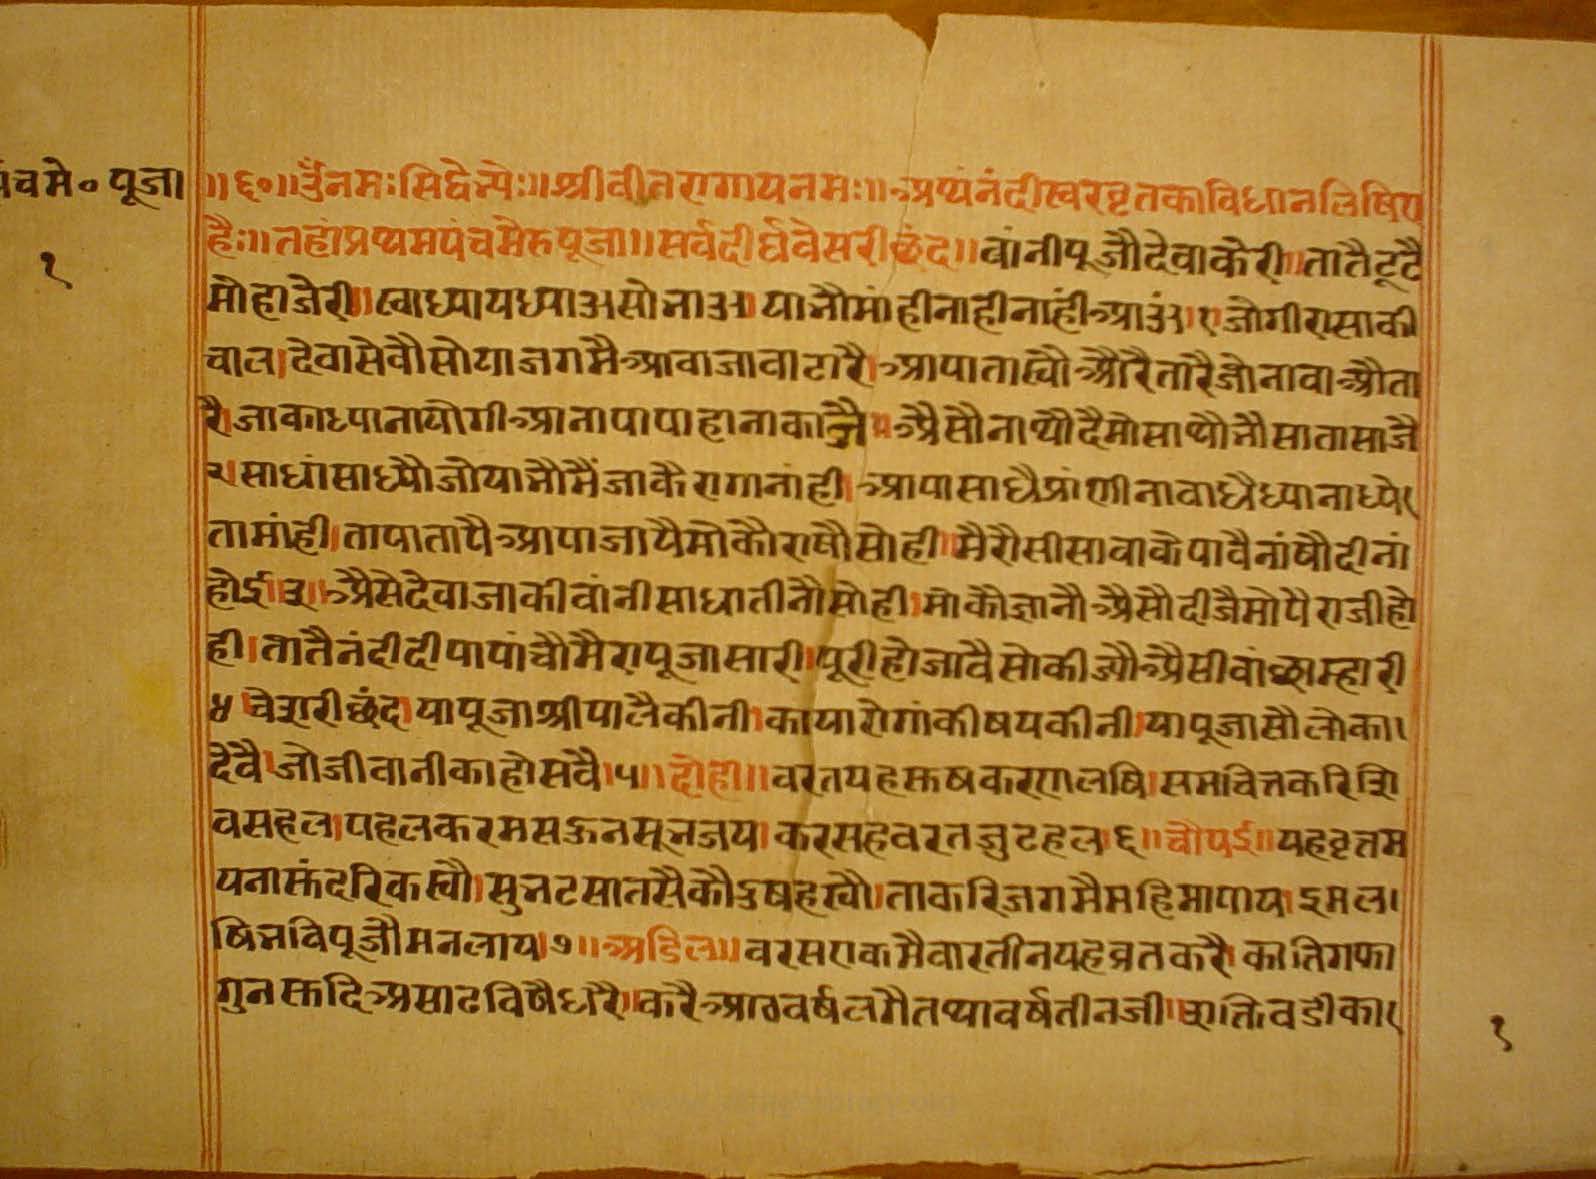 पंचमे॰ पूजा
१
॥६०॥ उँनमःसिद्धेभ्येः॥श्रीवीतरागायनमः॥अथनंदीस्वरवृतकाविधानलिषिए
हैः॥तहांप्रथमपंचमैरुपूजा॥सर्वदीर्घवेसरीछंद॥वांनीपूजौदेवाकेरी॥तातैटूटै
मोहाजेरी॥स्वाध्यायध्याऊसोनाऊ॥यानौमांहीनाहीनांहीआऊं॥१॥जोगीरासाकी
चाल।देवासेवौसोयाजगमैआवाजावाटारै।आपाताष्यौऔरैतारैजोनावाऔता
रैजाकाध्यानायोगीआनापापाहानाकाजै॥ऐसौनाथौदैमोसाथौनौसातासाजै
२।साधांसाध्यौजोयानौमैंजाकैरागानांही।आपासाधैप्रांणीनावाधैध्यानाध्ये।
तामांही।तापातापैआपाजायैमोकौराषौसोही।मैरौसीसावाकोपावैनांषौदीनां
होई॥३॥ऐसेदेवाजाकीवांनीसाधातीनौमोही।मोकौज्ञानौऐसौदीजैमोपैराजीहो
ही।तातैनंदीदीपापांचौमैरापूजासारी।पूरीहोजावैसोकीज्यौऐसीवांछाम्हारी
४।वेसरीछंद।यापूजाश्रीपालैकीनी।कायारोगांकीषयकीनी।यापूजासौलोका।
देवै।जोजीवानीकाहोसवै।५॥दोहा॥वरतयहक्तषकरणलषि।समवितकरिशि
वसहल।पहलकरमसऊनसूनजय।करसहवरतजुटहल।६॥चौपई॥यहवृतम
यनासुंदरिकस्यौ।सुभटसातसैकौदुषहस्यौ।ताकरिजगमैमहिमापाय।इमल।
षिभविपूजौमनलाय।७॥अडिल॥वरसएकमैवारतीनयहव्रतकरै।कातिगफा
गुनसुदिअसाढविषैधरै।करैआठवर्षलगैतथावर्षतीनजी।शक्तिवडीका।
१